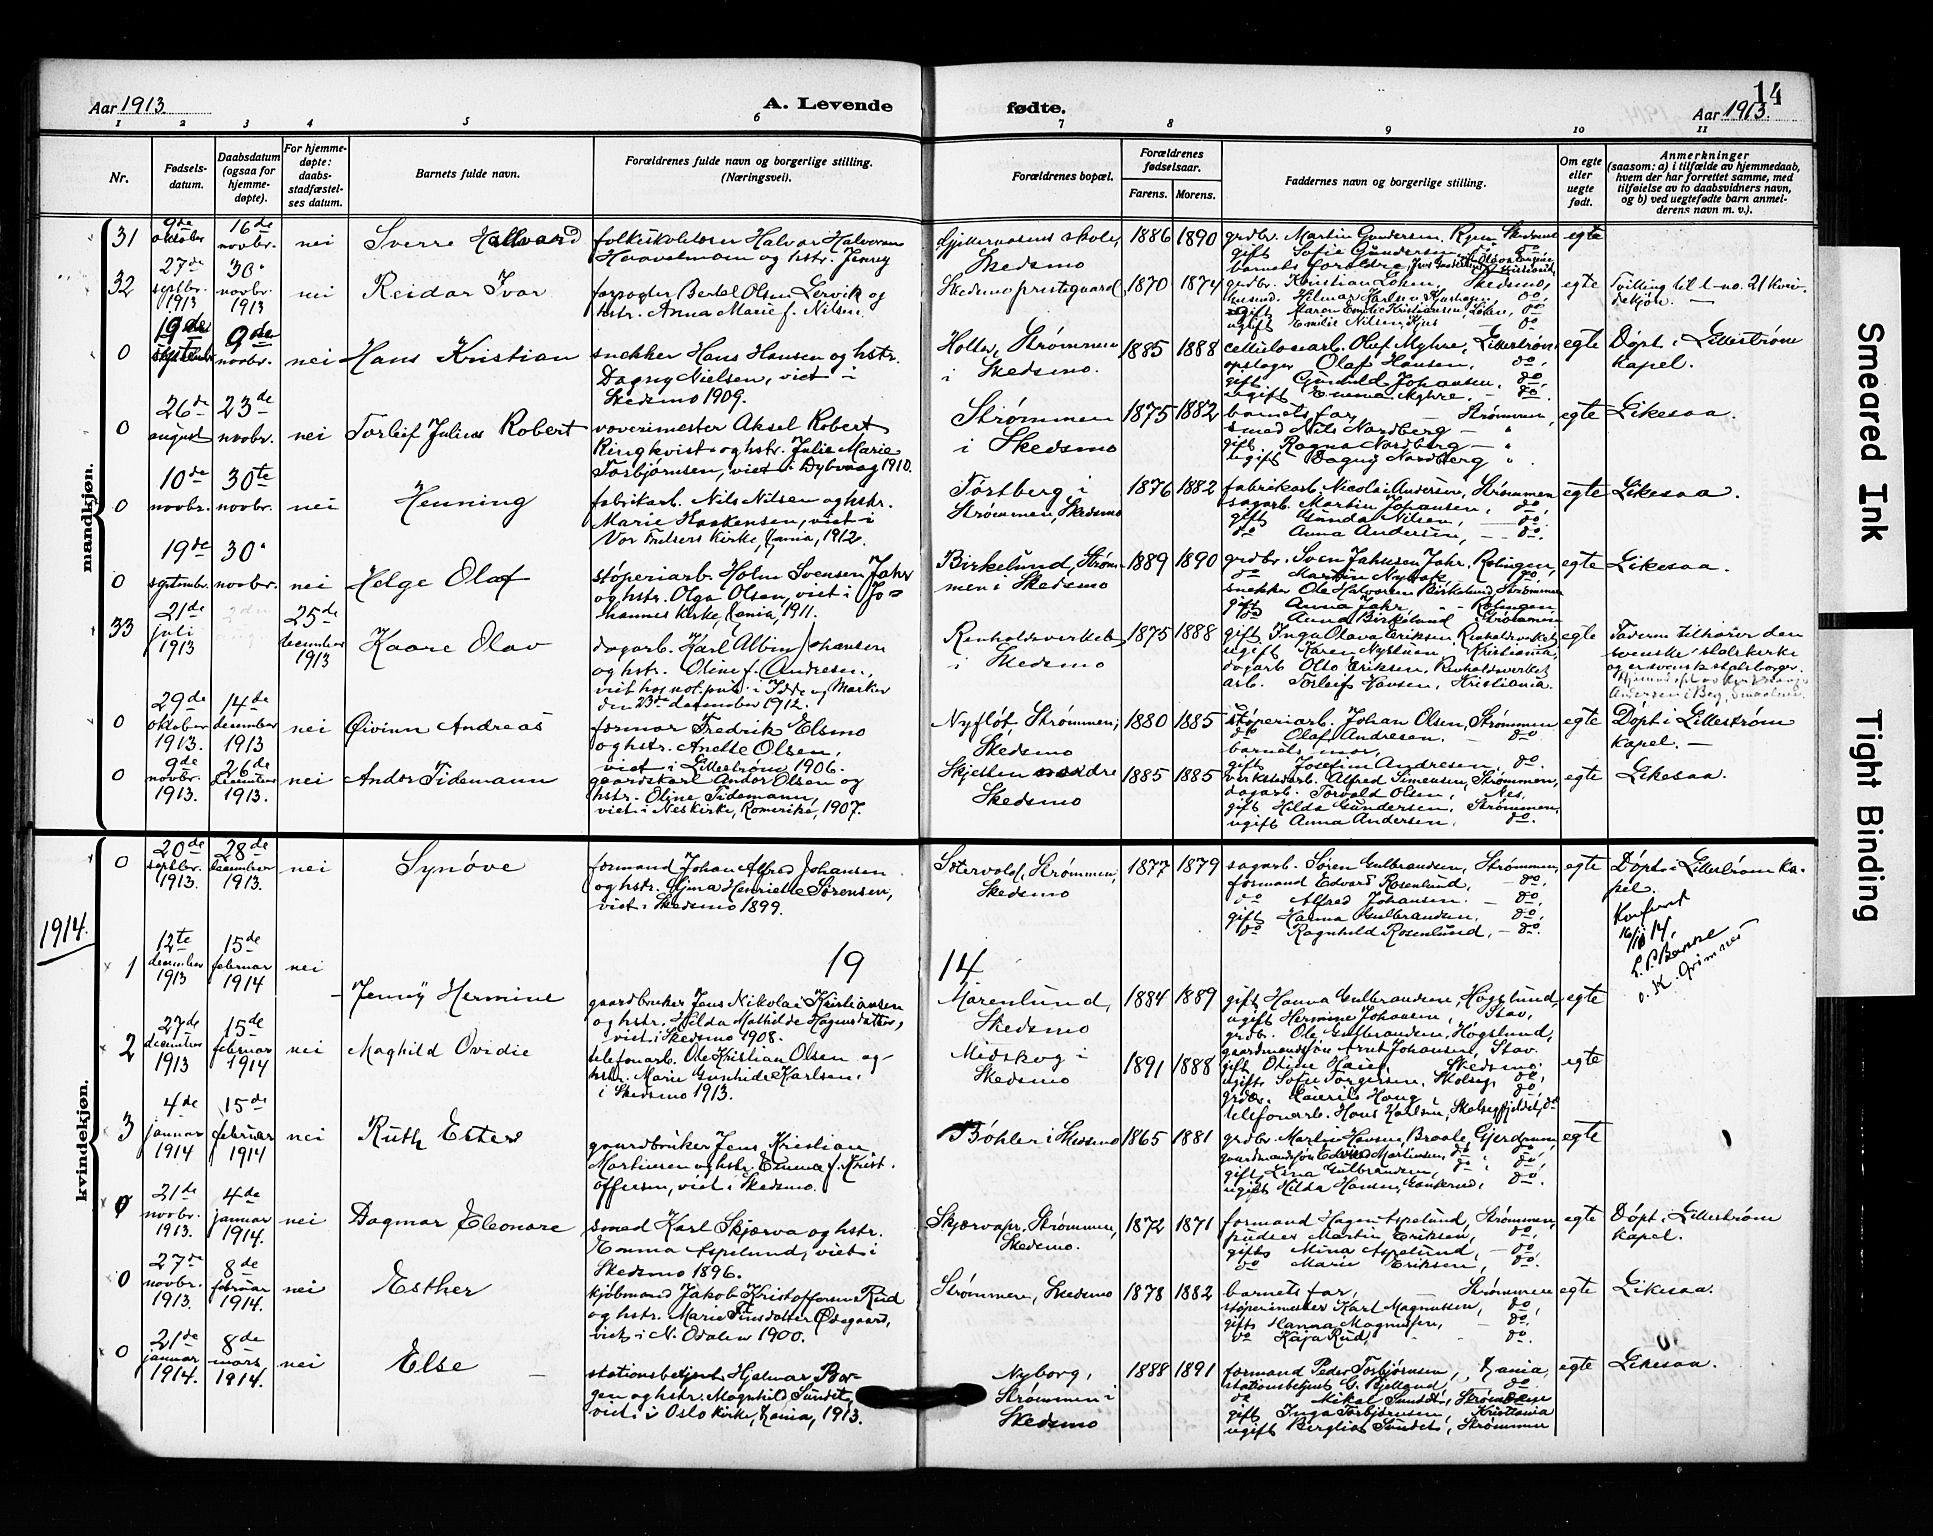 14
Aar 1913. A. Levende fødte. Aar 1913.
1 2 3 4 5 6 7 8 9 10 11
Nr.
Fødsels-
datum.
Daabsdatum
(ogsaa for
hjemme-
døpte).
For hjemme-
døpte:
daabs-
stadfæstel-
ses datum.
Barnets fulde navn.
Forældrenes fulde navn og borgerlige stilling.
(Næringsvei).
Forældrenes bopæl.
Forældrenes
fødselsaar.
Farens. Morens.
Faddernes navn og borgerlige stilling.
Om egte
eller
uegte
født.
Anmerkninger
(saasom: a) i tilfælde av hjemmedaab,
hvem der har forrettet samme, med
tilføielse av to daabsvidners navn,
og b) ved uegtefødte barn anmel-
derens navn m. v.).
mandkjøn.
31
9de
oktober
16de
novbr.
nei
Sverre Hallvard
folkeskolelærer Halvar Halvorsen
Haavelmoen og hstr. Jenny
skole,
Skedsmo
1886 1890
grdbr. Martin Gundersen, Skedsmo
gift Sofie Gundersen do
barnets forældre
egte
32
27de
septbr.
1913
30"
novbr.
1913
nei
Reidar Ivar
forpagter Bertel Olsen Lervik og
hstr. Anna Marie f. Nilsen
Skedsmo prestegaard,
1870 1874
grdbr. Kristian Løken, Skedsmo,
gift Maren Emilie Kristiansen, Løken, do
ugift Emilie Nilsen, do
egte
Tvilling til l-no. 21 kvin-
dekjøn. —
0
19de
septembr
9de
novbr.
nei
Hans Kristian
snekker Hans Hansen og hstr.
Dagny Nielsen, viet i
Skedsmo 1909.
Holter, Strømmen
i Skedsmo.
1885 1888
cellulosearb. Olaf Myhre, Lillestrøm,
opsløger Olaf Hansen, do.
gift Gunhild Johansen, do.
ugift Emma Myhre. - do.
egte
Døpt i Lillestrøm
kapel.
0
26de
august
23de
novbr.
nei
Torleif Julius Robert
voverimester Aksel Robert
Ringkvist og hstr. Julie Marie
Torbjørnsen, viet i Dybvaag 1910.
Strømmen
i Skedsmo
1875 1882
barnets far, — Strømmen,
smed Nils Nordberg — "
gift Ragna Nordberg — "
ugift Dagny Nordberg "
egte
Likesaa.
0
10de
novbr.
30te
novbr.
nei
Henning
fabrikarb. Nils Nilsen og hstr.
Marie Haakensen, viet i
Vor Frelsers Kirke, Kania, 1912.
Tørtberg i
Strømmen, Skedsmo
1876 1882
fabrikarb. Nicolai Andersen, Strømmen
sagarb. Martin Johansen, do.
gift Gunda Nilsen, — do.
do Anna Andersen, - do.
egte
Likesaa.
0
19de
septembr.
30"
novbr.
nei
Helge Olaf
støperiarb. Holm Svensen Jahr
og hstr. Olga Olsen, viet i Jo-
hannes Kirke, Kania, 1911.
Birkelund, Strøm-
men i Skedsmo
1889 1890
grdbr. Sven Jahnsen Jahr, Rolingen,
do Martin Nybak, do.
snekker Ole Halvorsen Birkelund, Strømmen
gift Anna Jahr, " - Rolingen
do Anna Birkelund Strømmen
egte
Likesaa.
33
21de
juli
1913
25de
december
1913
Kaare Olav
dagarb. Karl Albin Johansen
og hstr. Oline f. Andresen,
viet hos not. publ. i Idde og Marker
den 23de december 1912.
Renholdsverket,
i Skedsmo
1875 1888
gift Inga Olava Eriksen, Renholdsverket
ugift Karen Nystuen Kristiania,
dagarb. Otto Eriksen, Renholdsverket
arb. Torleif Hansen, Kristiania.
egte
Faderen tilhører den
svenske statskirke
og er svensk statsborger.
0
29de
oktober
1913.
14de
december
1913
nei
Øivinn Andreas
former Fredrik Elsmo
og hstr. Anette Olsen,
viet i Lillestrøm 1906.
Nyfløt, Strømmen,
Skedsmo
1880 1885
støperiarb. Johan Olsen, Strømmen
do Olaf Andresen. — do.
barnets mor,
gift Josefine Andresen, do.
egte
Døpt i Lillestrøm
kapel. —
0
9de
novbr.
1913.
26de
december
1913.
nei
Andor Tidemann
gaardskarl Andor Olsen og
hstr. Oline Tidemann,
viet i Nes kirke, Romerike, 1907.
Skjetten nordre
Skedsmo
1885 1885
verkstedarb. Alfred Simensen, Strømmen,
dagarb. Torvald Olsen, Nes.
gift Hilda Gundersen, Strømmen,
ugift Anna Andersen, do.
egte
Likesaa.
kvindekjøn.
0
20de
septbr.
1913.
28de
december
1913.
nei
Synøve
formand Johan Alfred Johansen
og hstr. Gjina Henriette Sørensen,
viet i Skedsmo 1899.
Strømmen,
Skedsmo
1877 1879
sagarb. Søren Gulbrandsen, Strømmen,
formand Edvard Rosenlund, - do.
do Alfred Johansen. - do.
gift Hanna Gulbrandsen. do.
do Ragnhild Rosenlund, - do.
egte
Døpt i Lillestrøm ka-
pel.
Konferert
1914.
19 14
1
12te
december
1913
15de
februar
1914
nei
Jenny Hermine
gaardbruker Jens Nikolai Kristiansen
og hstr. Hilda Mathilde Hagensdatter,
viet i Skedsmo 1908.
Marenlund,
Skedsmo
1884 1889
gift Hanna Gulbrandsen, Høgslund,
ugift Hermine Johansen, Stav,
grdbr. Ole Gulbrandsen, Høgslund,
gaardmandssøn Arnt Johansen, Stav.
egte
2
27de
december
1913
15de
februar
1914
nei
Maghild Ovidie
telefonarb. Ole Kristian Olsen og
hstr. Marie Gunhilde Karlsen,
i Skedsmo 1913.
Midskog i
Skedsmo
1891 1888
ugift Sofie Torgersen, do,
grdbr. Laurits Haug do
telefonarb. Hans Karlsen, do
egte
3
4de
januar
1914
15de
februar
1914
nei
Ruth Ester
gaardbruker Jens Kristian
Martinsen og hstr. Emma f. Krist-
offersen, viet i Skedsmo.
Bøhler i Skedsmo
1865 1881
grdbr. Martin Hansen, Braate, Gjerdrum,
gift Lina Gulbrandsen, do do
ugift Hilda Hansen, do.
egte
0
21de
novbr.
1913.
4de
januar
1914.
nei
Dagmar Eleonore
smed Karl Skjærva og hstr.
Emma Aspelund, viet i
Skedsmo 1896.
Skjærvapr. Strømmen,
Skedsmo.
1872 1871
formand Hagen Aspelund, Strømmen,
pudser Martin Eriksen, do.
gift Mina Aspelund, — do.
do Marie Eriksen, do.
egte
Døpt i Lillestrøm
kapel.
0
27de
novbr.
1913.
8de
februar
1914.
nei
Esther
kjøbmand Jakob Kristoffersen Rud
og hstr. Marie Finsdatter Ødegaard,
viet i N. Odalen 1900.
Strømmen, Skedsmo
1878 1882
barnets far, — Strømmen
støperimester Karl Magnussen, do.
gift Hanna Magnussen, do.
do Kaja Rud, do.
egte
Likesaa.
0
21de
januar
1914.
8de
mars
1914.
nei
Else
stationsbetjent Hjalmar Bor-
gen og hstr. Magnhild Sundet,
viet i Oslo kirke, Kania, 1913.
Nyborg,
Strømmen i
Skedsmo
1888 1891
formand Peder Torbjørnsen, Kania,
stationsbetjent G. Bjelland — do.
do Mikal Sundet, Strømmen
gift Inga Torbjørnsen, Kristiania
ugift Bergliot Sundet, Strømmen
egte
Likesaa.
Smeared Ink
Tight Binding